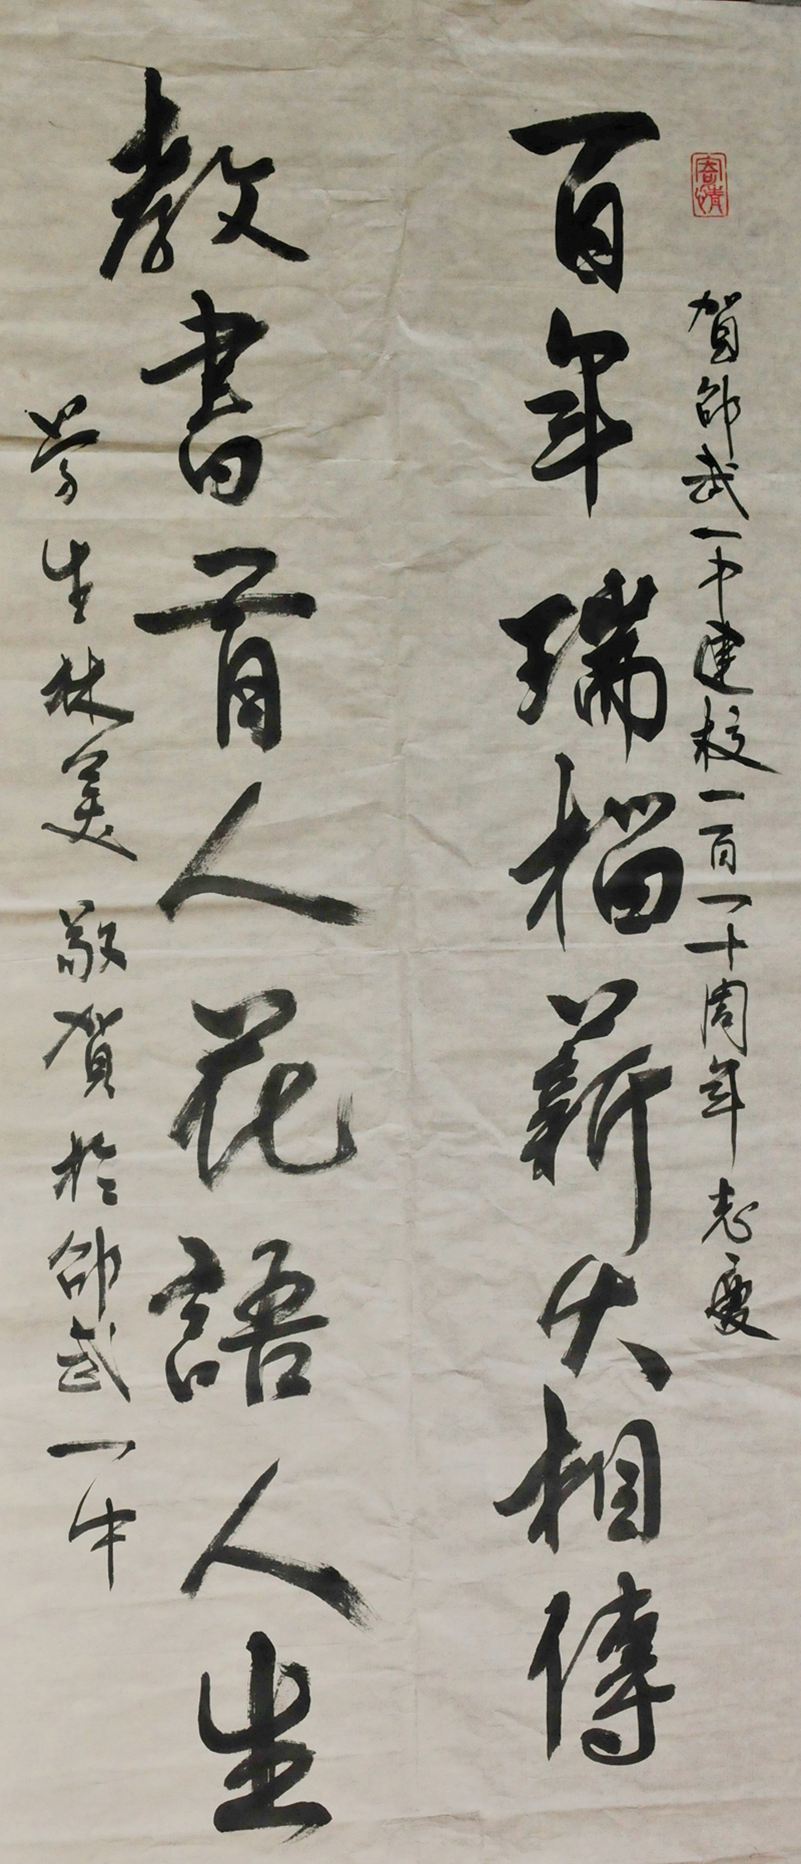 寄情
賀邵武一中建校一百一十周年志慶
百年瑞榴薪火相傳
教書育人花語人生
学生林美敬賀於邵武一中